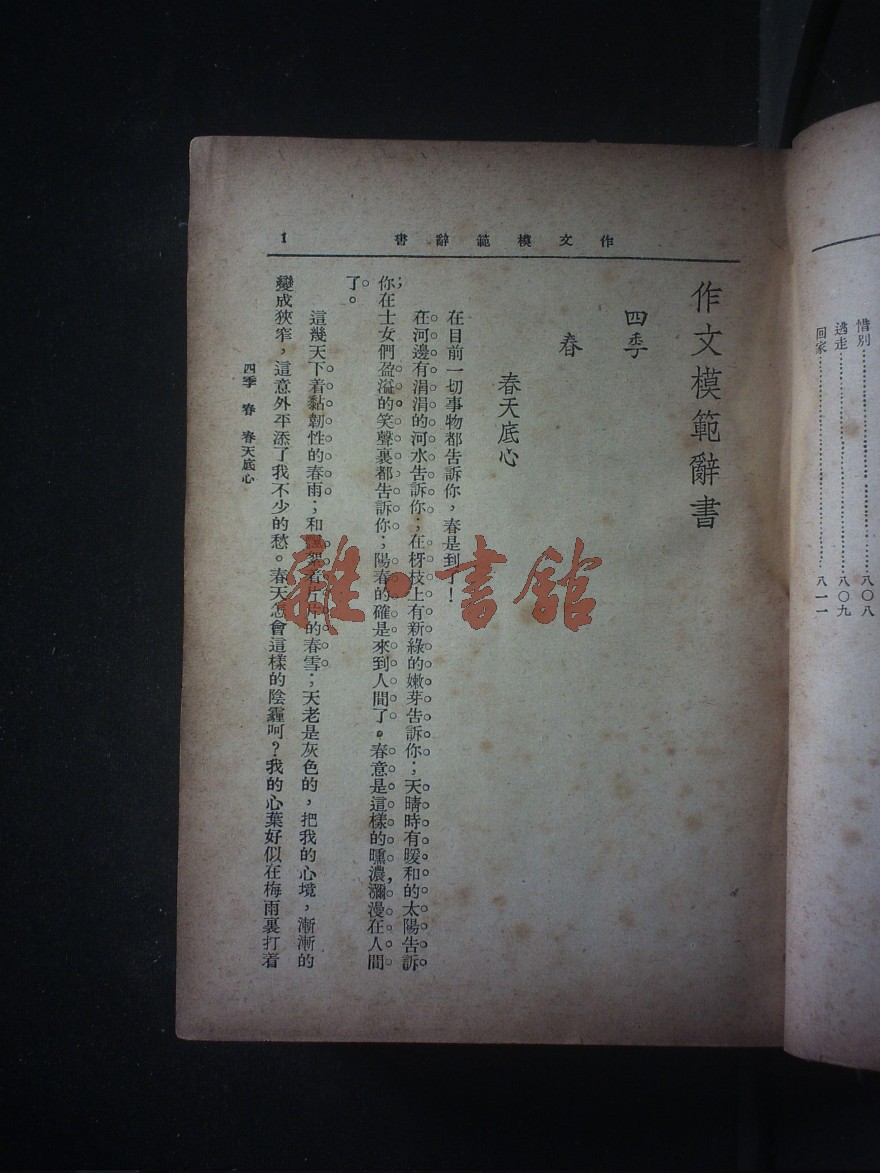 惜別……………………八〇八
逃走……………………八〇九
回家……………………八一一
作文模範辭書
1
作文模範辭書
四季
春
春天底心
在目前一切事物都告訴你，春是到了！
在河邊有涓涓的河水告訴你；在枒枝上有新綠的嫩芽告訴你；天晴時有暖和的太陽告訴
你在士女們盈溢的笑聲裏都告訴你；陽春的確是來到人間了。春意是這樣的曛濃，瀰漫在人間
了。
這幾天下着黏韌性的春雨；和飄絮着片片的春雪；天老是灰色的，把我的心境，漸漸的
變成狹窄，這意外平添了我不少的愁。春天怎會這樣的陰霾呵？我的心葉好似在梅雨裏打着
四季 春 春天底心
雜·書館